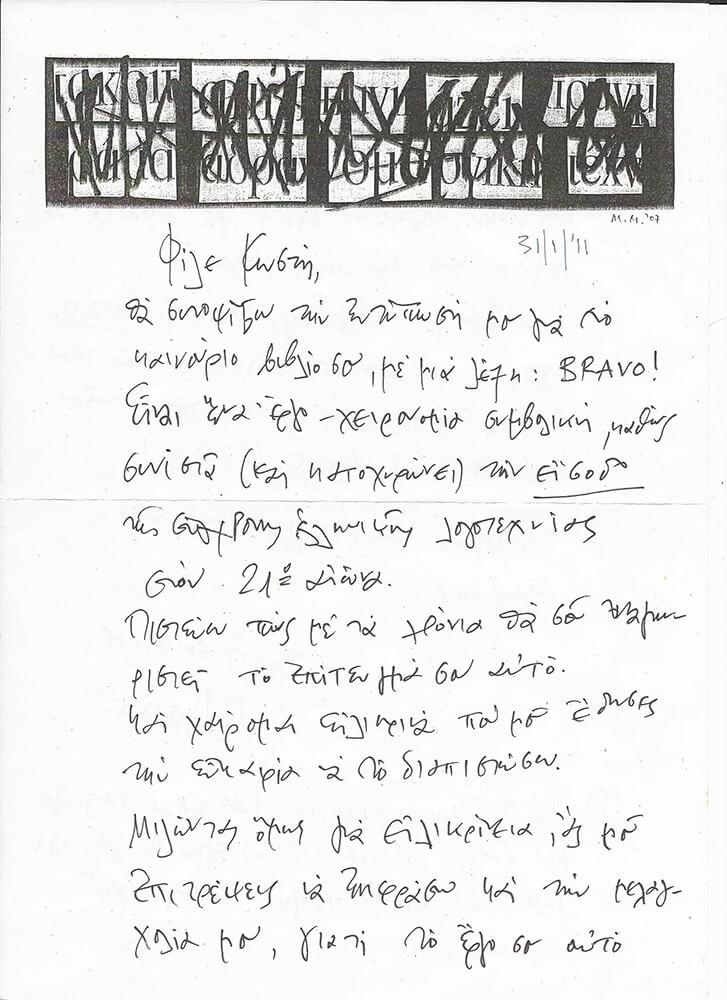 M.M. '07
31/1/'11
Φίλε Κωστή,
θὰ συνοψίσω τὴν ἐντύπωσή μου γιὰ τὸ
καινούριο βιβλίο σου, μὲ μιὰ λέξη: BRAVO!
Εἶναι ἕνα ἔργο-χειρονομία συμβολική, καθὼς
συνιστᾶ (καὶ κατοχυρώνει) τὴν εἴσοδο
τῆς σύγχρονης ἑλληνικῆς λογοτεχνίας
στὸν 21ο αἰῶνα.
Πιστεύω πὼς μὲ τὰ χρόνια θὰ σοῦ ἀναγνω-
ριστεῖ τὸ ἐπίτευγμά σου αὐτό.
Καὶ χαίρομαι εἰλικρινὰ ποὺ μοῦ ἔδωσες
τὴν εὐκαιρία νὰ τὸ διαπιστώσω.
Μιλώντας ὅμως γιὰ εἰλικρίνεια, ἂς μοῦ
ἐπιτρέψεις νὰ ἐκφράσω καὶ τὴν μελαγ-
χολία μου, γιατὶ τὸ ἔργο σου αὐτὸ